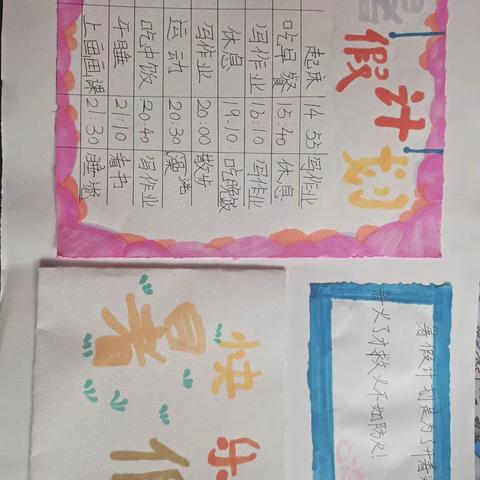 暑假计划
起床 14:55 写作业
吃早餐 15:40 休息
写作业 16:10 写作业
休息 19:10 吃晚饭
写作业 20:00 散步
运动 20:30 洗澡
吃中饭 20:40 写作业
午睡 21:10 看书
上画画课 21:30 睡觉
快乐
暑假
暑假计划是为了
着火了才救火不如防火!